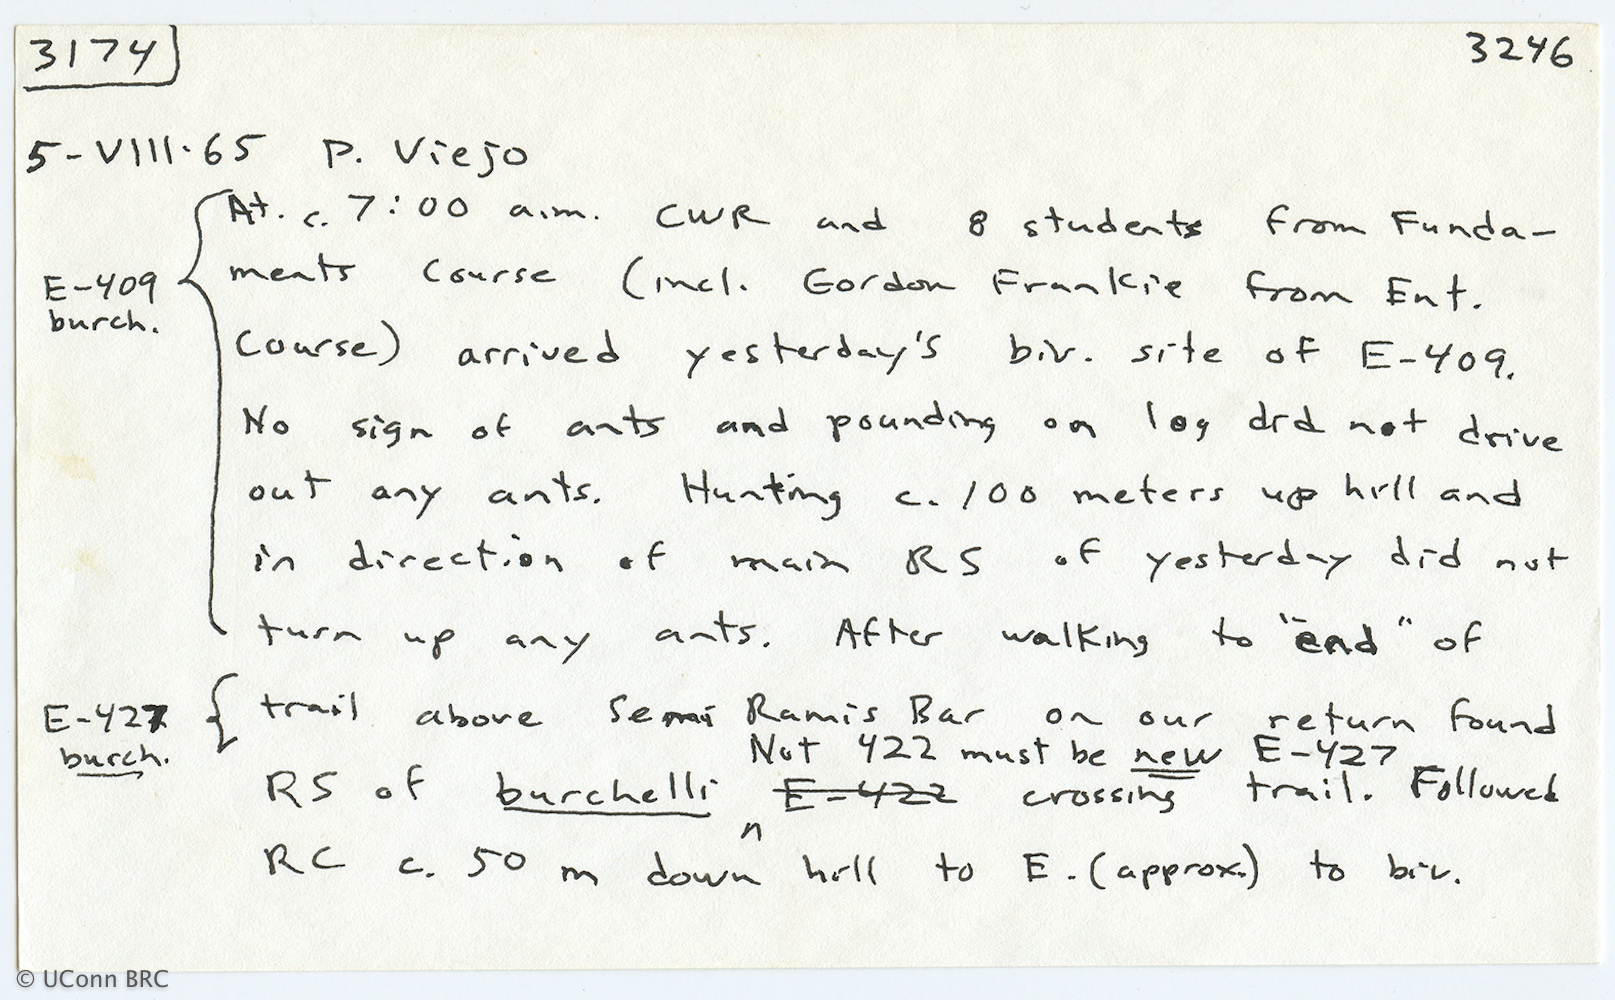 3174 3246
5-VIII-65 P. Viejo
At. c. 7:00 a.m. CWR and 8 students from Funda-
E-409 burch. ments Course (incl. Gordon Frankie from Ent.
Course) arrived yesterday's biv. site of E-409.
No sign of ants and pounding on log did not drive
out any ants. Hunting c. 100 meters up hill and
in direction of main RS of yesterday did not
turn up any ants. After walking to "end" of
E-427 burch. trail above Semi Ramis Bar on our return found
Not 422 must be new E-427
RS of burchelli E-422 crossing trail. Followed
RC c. 50 m down hill to E. (approx.) to biv.
© UConn BRC